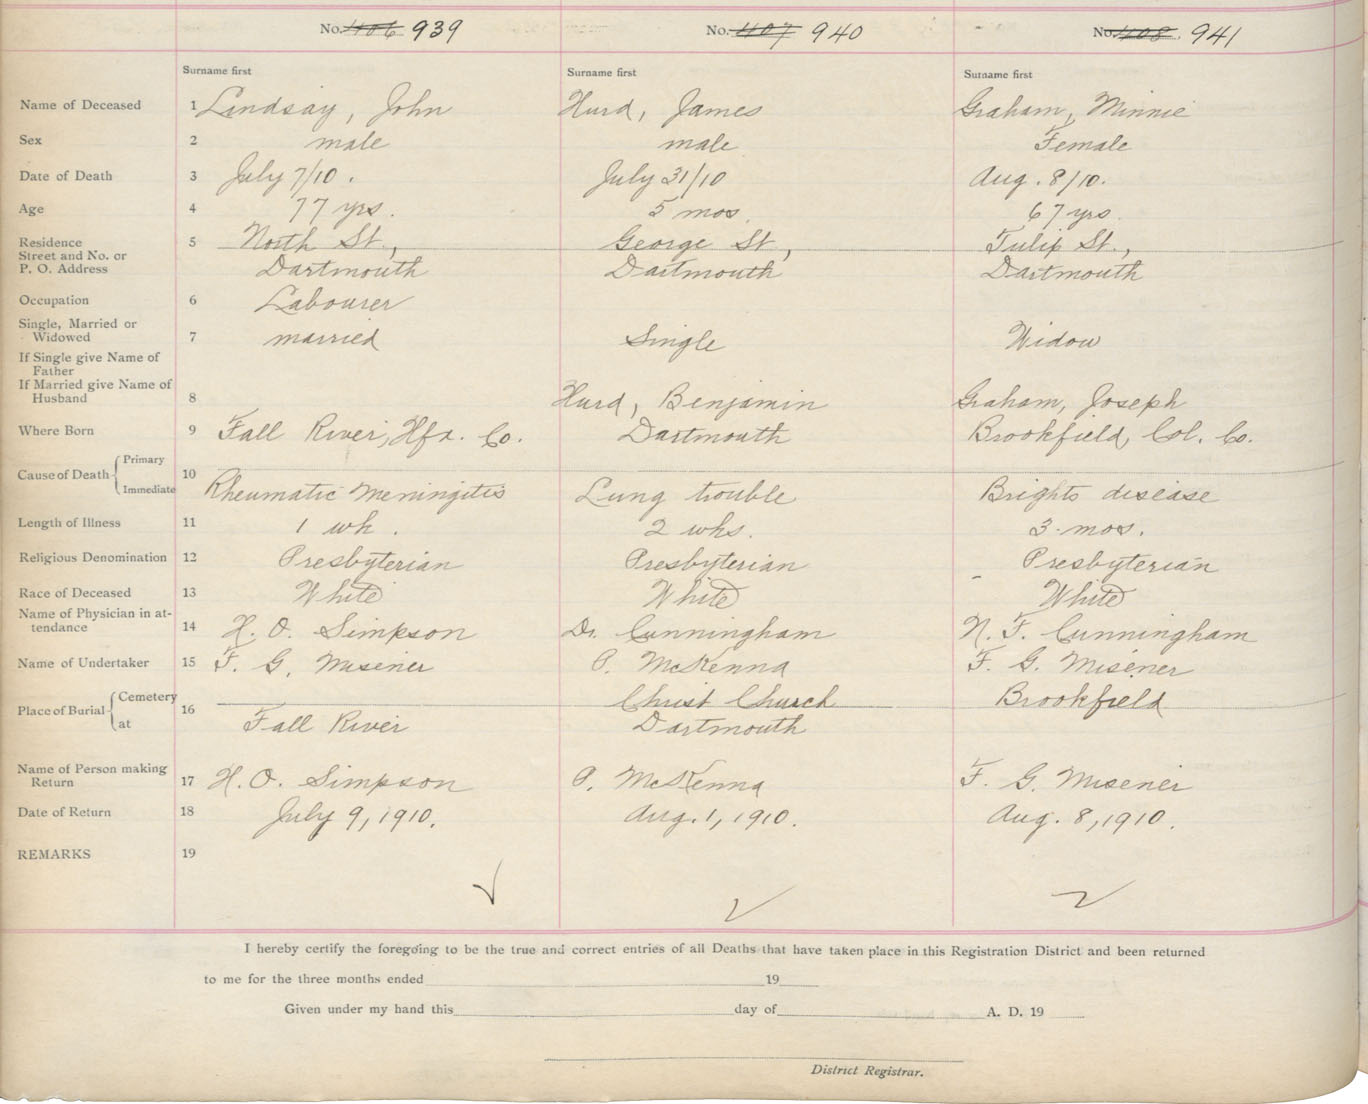 No. 406 939 No. 407 940 No. 408 941
Surname first Surname first Surname first
Name of Deceased 1 Lindsay, John Hurd, James Graham, Minnie
Sex 2 male male Female
Date of Death 3 July 7/10. July 31/10 Aug. 8/10.
Age 4 77 yrs. 5 mos. 67 yrs.
Residence 5 North St., George St., Tulip St.,
Street and No. or
P. O. Address Dartmouth Dartmouth Dartmouth
Occupation 6 Labourer
Single, Married or
Widowed 7 married Single Widow
If Single give Name of
Father
If Married give Name of
Husband 8 Hurd, Benjamin Graham, Joseph
Where Born 9 Fall River, Hfx. Co. Dartmouth Brookfield, Col. Co.
Cause of Death Primary 10
Immediate Rheumatic Meningitis Lung trouble Brights disease
Length of Illness 11 1 wk. 2 wks. 3 mos.
Religious Denomination 12 Presbyterian Presbyterian Presbyterian
Race of Deceased 13 White White White
Name of Physician in at-
tendance 14 H. O. Simpson Dr. Cunningham N. F. Cunningham
Name of Undertaker 15 F. G. Misener P. McKenna F. G. Misener
Place of Burial Cemetery 16 Christ Church Brookfield
at Fall River Dartmouth
Name of Person making
Return 17 H. O. Simpson P. McKenna F. G. Misener
Date of Return 18 July 9, 1910. Aug. 1, 1910. Aug. 8, 1910.
REMARKS 19
I hereby certify the foregoing to be the true and correct entries of all Deaths that have taken place in this Registration District and been returned
to me for the three months ended 19
Given under my hand this day of A. D. 19
District Registrar.